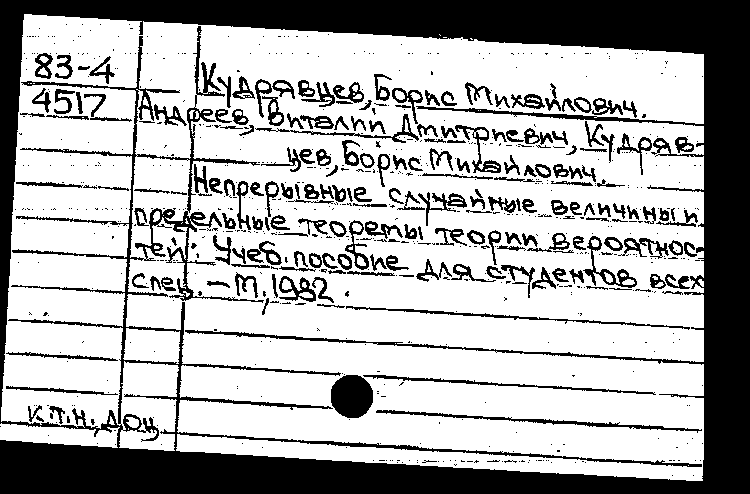 83-4
4517
Кудрявцев, Борис Михайлович.
Андреев, Виталий Дмитриевич, Кудряв-
цев, Борис Михайлович.
Непрерывные случайные величины и
предельные теоремы теории вероятнос-
тей: Учеб. пособие для студентов всех
спец. – М., 1982.
к.т.н., доц.